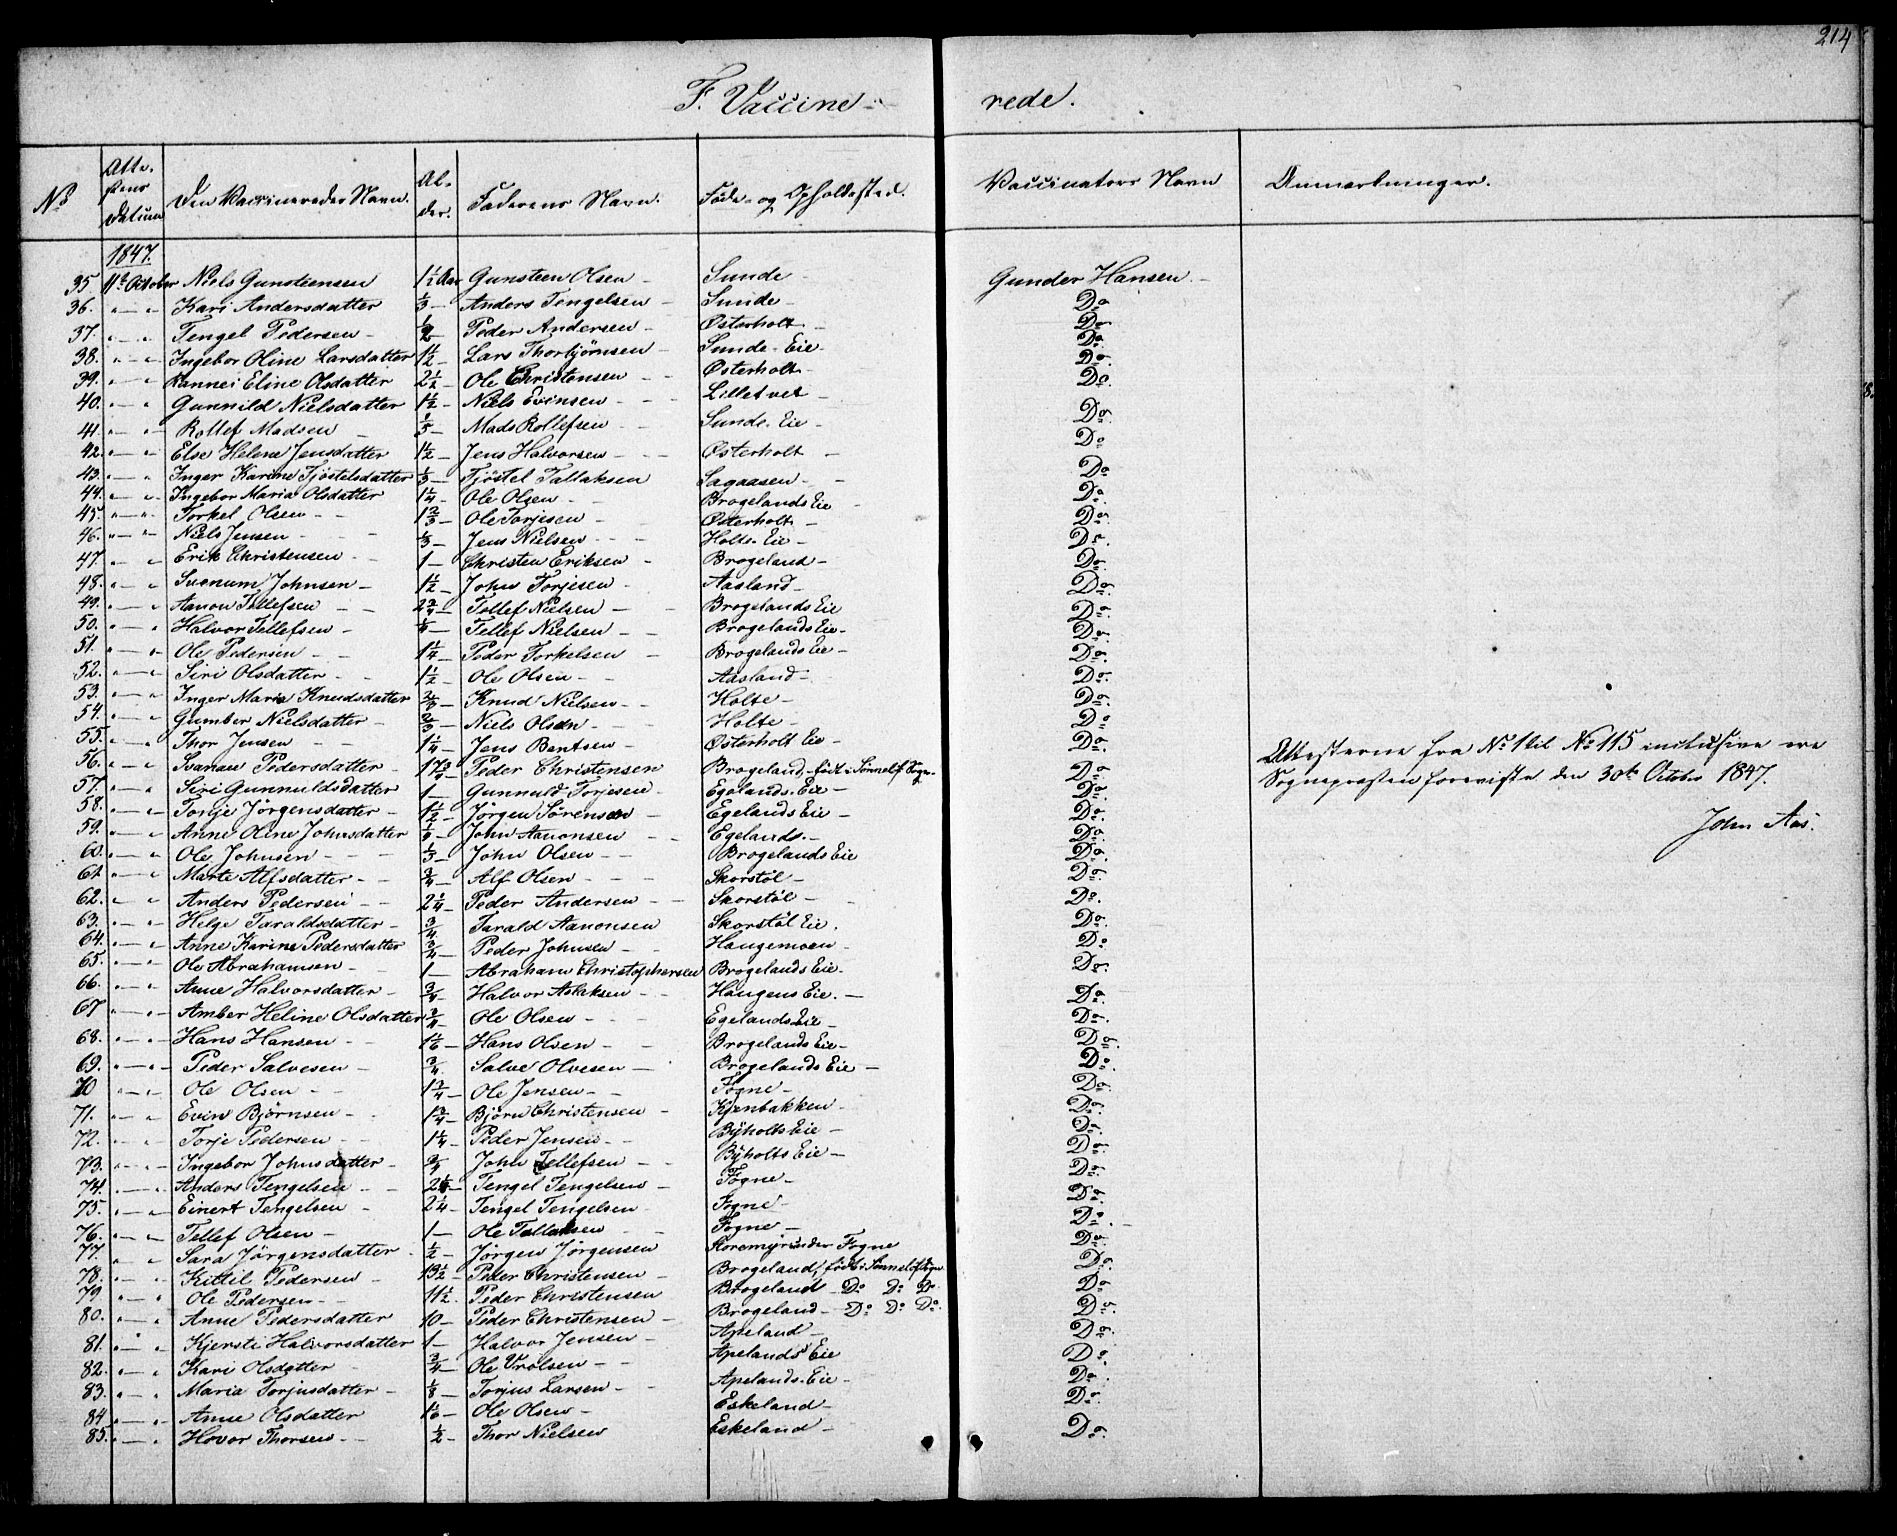 214
F. Vaccine- rede.
No Attestens Datum Den Vaccineredes Navn. Alder. Faderens Navn. Føde- og Opholdssted. Vaccinators Navn Anmærkninger.
1847.
35 11te October Niels Gunsteensen 1½ Aar Gunsteen Olsen - Sunde - Gunder Hansen. -
36. " — " Kari Andersdatter ⅓ — Anders Tengelsen - Sunde - Do
37. " — " Tengel Pedersen - ½ — Peder Andersen - Østerholt - Do
38. " — " Ingebor Oline Larsdatter 1½ — Lars Thorbjørnsen - Sunde-Eie - Do
39. " — " Eline Olsdatter 2½ — Ole Christensen - - Østerholt - Do
40. " — " Gunnild Nielsdatter 1½ — Niels Evinsen - - - Lilletvet - Do
41. " — " Rollef Madsen - — Mads Rollefsen - - Sunde-Eie - Do
42. " — " Else Helene Jensdatter 1½ — Jens Halvorsen - - - Østerholt - Do
43. " — " Inger Karine Fjøstelsdatter ⅓ — Fjøstel Tallaksen Lagaasen - - Do
44. " — " Ingebor Maria Olsdatter 1¼ — Ole Olsen - - Brogelands Eie - Do
45. " — " Torkel Olsen - - 1⅔ — Ole Torjesen - Østerholt - Do
46. " — " Niels Jensen - - - ⅓ — Jens Nielsen - - - Holte-Eie - Do
47. " — " Erik Christensen - 1 — Christen Eriksen - Brogeland - Do
48. " — " Svenum Johnsen - 1½ — John Torjesen - Aasland - Do
49. " — " Aanon Tellefsen - - 2¾ — Tellef Nielsen - - Brogelands Eie Do
50. " — " Halvor Tellefsen - — Tellef Nielsen - - Brogelands Eie - Do
51. " — " Ole Pedersen - - 1¼ — Peder Torkelsen - Brogelands Eie - Do
52. " — " Siri Olsdatter - - 1½ — Ole Olsen - - Aasland - Do
53. " — " Inger Maria Knudsdatter ⅔ — Knud Nielsen - - Holte - Do
54. " — " Gumber Nielsdatter - ⅔ — Niels Olsen - - Holte - Do
55. " — " Thor Jensen - - 1¼ — Jens Bentsen - Østerholt Eie - Do
56. " — " Pedersdatter - 17¾ — Peder Christensen Brogeland - født i Sønnelef Sogn. Do
57. " — " Siri Gunnuldsdatter 1 — Gunnuld Torjesen - Egelands-Eie - Do
58. " — " Torje Jørgensdatter 1½ — Jørgen Sørensen Egelands Eie - Do
59. " — " Anne Oline Johnsdatter — John Aanonsen - Egelands - Do
60. " — " Ole Johnsen - - - ⅓ — John Olsen - - Brogelands Eie Do
61. " — " Marte Alfsdatter - - ¾ — Alf Olsen - - - Skorstøl - Do
62. " — " Anders Pedersen - - 2¼ — Peder Andersen - - Skorstøl - Do
63. " — " Helge Taraldsdatter - ¾ Tarald Aanonsen Skorstøl Eie. Do
64. " — " Anne Karine Pedersdatter ¾ — Peder Johnsen - - Haugemoen - Do
65. " — " Ole Abrahamsen - 1 — Abraham Christophersen Brogelands Eie - Do
66. " — " Anne Halvorsdatter - ¾ — Halvor Aslaksen - - Haugens Eie. - Do
67 " — " Amber Heline Olsdatter ¾ — Ole Olsen - - - Egelands Eie - Do
68. " — " Hans Hansen - - 1⅙ — Hans Olsen - - Brogelands Eie - Do
69. " — " Peder Salvesen - ¾ — Salve Olvesen - Brogelands Eie - Do
70 " — " Ole Olsen - - 1¾ — Ole Jensen - - Fogne - Do
71. " — " Evin Bjørnsen - - 1¾ — Bjørn Christensen - Kjenbakken - Do
72. " — " Torje Pedersen - - 1¼ — Peder Jensen - - Byholts Eie - Do
73. " — " Ingebor Johnsdatter - ¾ — John Tellefsen - - Byholts Eie - Do
74. " — " Anders Tengelsen - - — Tengel Tengelsen - Fogne - Do
75. " — " Einert Tengelsen - 2¼ — Tengel Tengelsen - Fogne - Do
76. " — " Tellef Olsen - 1 — Ole Tallaksen - - Fogne - Do
77. " — " Sara Jørgensdatter - ½ — Jørgen Jørgensen Storemyr under Fogne Do
78. " — " Kittil Pedersen - 13½ — Peder Christensen - Brogeland, født i Sønnelefs Sogn Do
79 " — " Ole Pedersen - - 11½ — Peder Christensen Brogeland - Do Do Do Do
80. " — " Anne Pedersdatter 10 — Peder Christensen - Brogeland - Do Do Do Do
81. " — " Kjersti Halvorsdatter 1 — Halvor Jensen - Apeland - Do
82. " — " Kari Olsdatter - ¾ — Ole Vrolsen - - Apelands Eie Do
83. " — " Maria Torjusdatter - ⅛ — Torjus Larsen - - Apelands-Eie - Do
84 " — " Anne Olsdatter 1⅙ — Ole Olsen - - Eskeland - Do
85. " — " Hovor Thorsen - - ½ — Thor Nielsen Eskeland - Do
Attesterne fra No 1 til No 115 inclusive ere
Sognepræsten foreviste den 30te Octobr 1847.
John Aas.